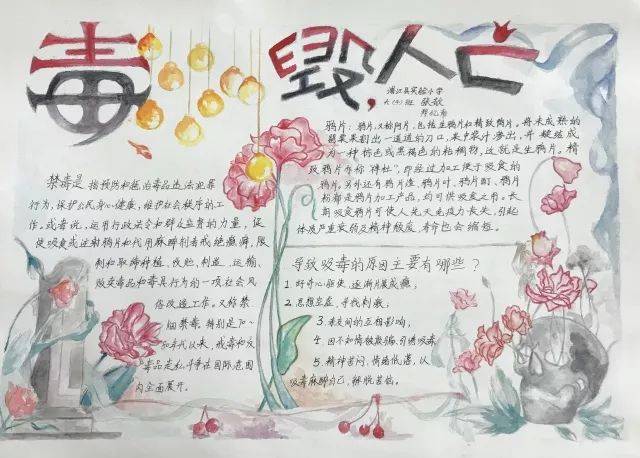 毒毁人亡
浦江县实验小学
六(4)班 张敏
禁毒是 指预防和惩治毒品违法犯罪
行为,保护公民身心健康,维护社会秩序的工
作。或者说,运用行政法令和群众监督的力量,促
使吸食或注射鸦片和代用麻醉剂者戒绝癫癖,限
制和取缔种植、收贮、制造、运输、
贩卖毒品和毒具行为的一项社会风
俗改造工作。又称禁
烟禁毒,特别是70~
80年代以来,戒毒和反
毒品走私斗争在国际范围
内全面展开。
鸦片:鸦片,又称阿片,包括生鸦片和精致鸦片。将未成熟的
罂粟果割出一道道的刀口,果中浆汁渗出,并凝结成
为一种棕色或黑褐色的粘稠物,这就是生鸦片。精
致鸦片亦称"禅杜",即经过加工便于吸食的
鸦片。另外还有鸦片渣、鸦片叶、鸦片酊、鸦片
粉都是鸦片加工产品,均可供吸食之用。长
期吸食鸦片可使人先天免疫力丧失,引起
体质严重衰弱及精神颓废,寿命也会缩短。
导致吸毒的原因主要有哪些?
1.好奇心驱使,逐渐成瘾;
2.思想空虚,寻找刺激,
3.亲友间的互相影响,
4.因不知情被欺骗,引诱吸毒
5.精神苦闷,情绪低落,以
吸毒麻醉自己,解脱苦恼。